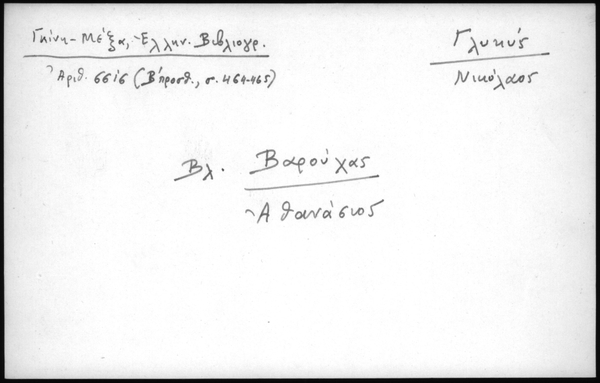 Γκίνη-Μέξα, Ἑλλην. Βιβλιογρ.
Ἀριθ. 6616 (Β' προσθ., σ. 464-465)
Γλυκύς
Νικόλαος
Βλ. Βαρούχας
Ἀθανάσιος